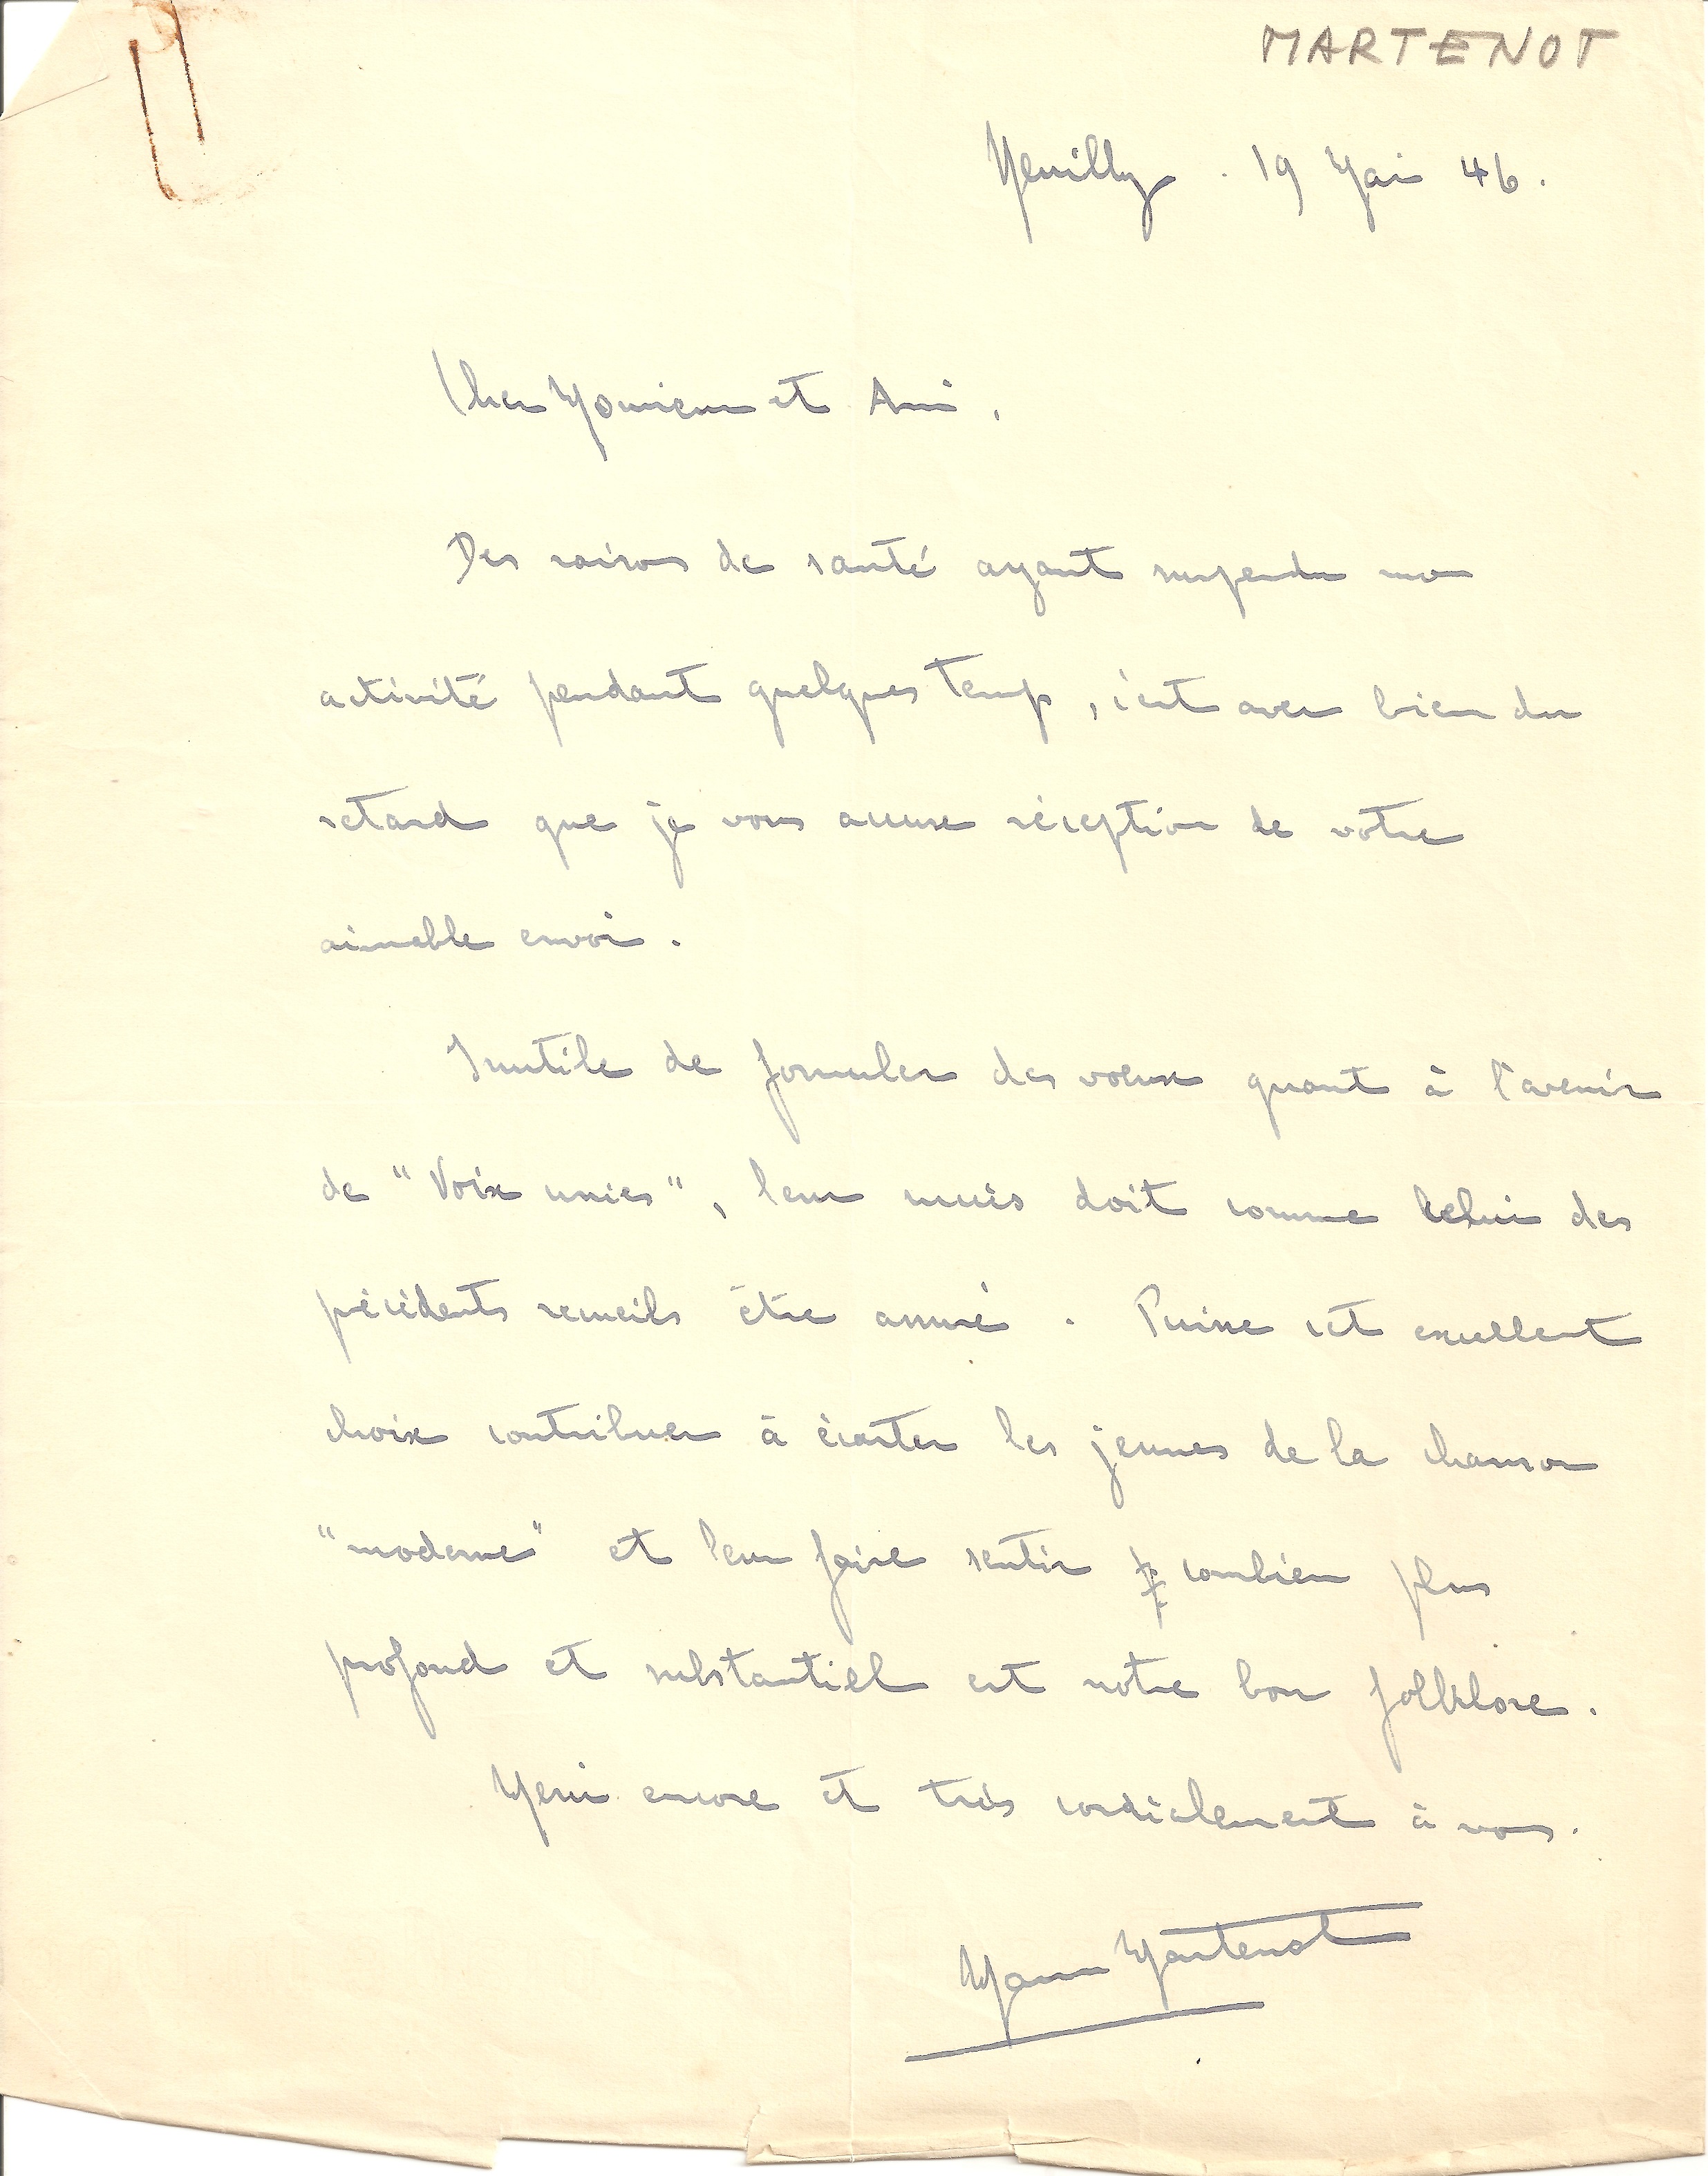 MARTENOT
Neuilly . 19 Mai 46.
Cher Monsieur et Ami,
Des raisons de santé ayant suspendu mon
activité pendant quelques temps, c'est avec bien du
retard que je vous accuse réception de votre
aimable envoi.
Inutile de formuler des voeux quant à l'avenir
de "Voix unies", leur succès doit comme celui des
précédents recueils être assuré. Puisse cet excellent
choix contribuer à écarter les jeunes de la chanson
"moderne" et leur faire sentir combien plus
profond et substantiel est notre bon folklore.
Merci encore et très cordialement à vous.
Martenot